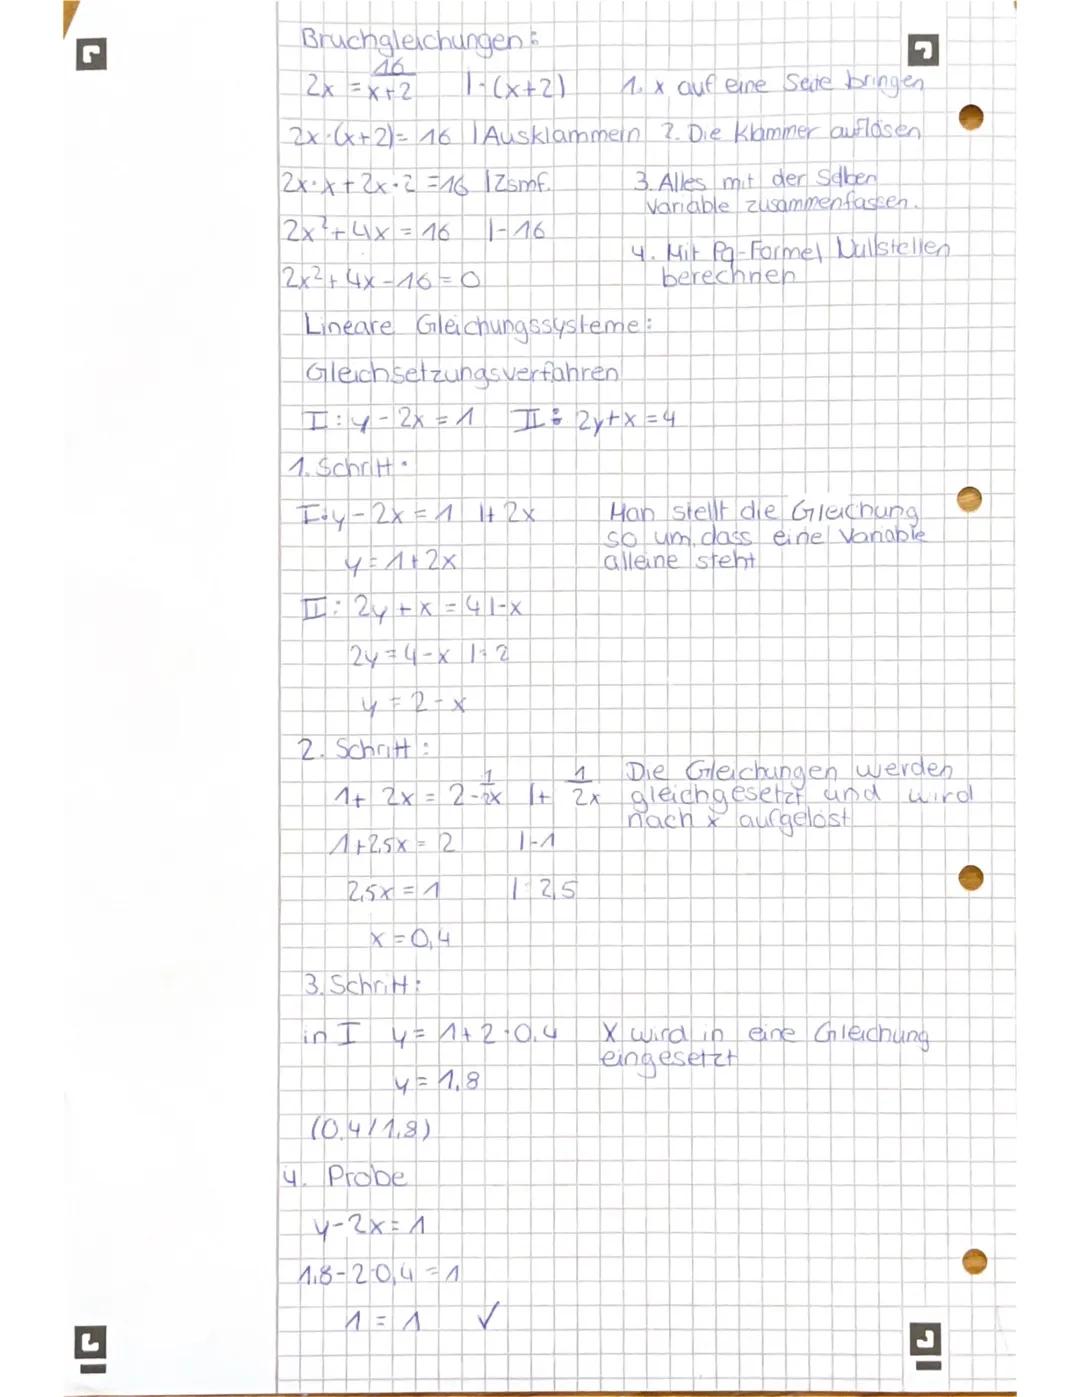 Bruchgleichungen:
2x = 16/x+2 |·(x+2) 1. x auf eine Seite bringen
2x·(x+2)= 16 |Ausklammern 2. Die Klammer auflösen
2x·x+2x·2=16 |Zsmf. 3. Alles mit der Selben
Variable zusammenfassen.
2x²+4x = 16 |-16
4. Mit Pq-Formel Nullstellen
2x²+4x-16=0 berechnen
Lineare Gleichungssysteme:
Gleichsetzungsverfahren
I: y-2x=1 II: 2y+x=4
1. Schritt:
I: y-2x=1 |+2x Man stellt die Gleichung
so um, dass eine Variable
y=1+2x alleine steht
II: 2y+x=4 |-x
2y=4-x |:2
y=2-x
2. Schritt:
1+2x = 2-1/2x |+ 1/2x Die Gleichungen werden
gleichgesetzt und wird
nach x aufgelöst
1+2,5x = 2 |-1
2,5x = 1 |:2,5
x=0,4
3. Schritt:
in I y= 1+2·0,4 X wird in eine Gleichung
eingesetzt
y=1,8
(0,4/1,8)
4. Probe
y-2x=1
1,8-2·0,4=1
1=1 ✓